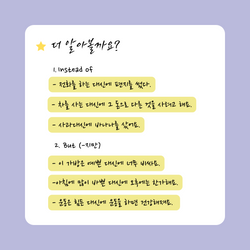 더 알아볼까요?
1. Instead of
- 전화를 하는 대신에 편지를 썼다.
- 차를 사는 대신에 그 돈으로 다른 것을 사려고 해요.
- 사과대신에 바나나를 샀어요.
2. But (-지만)
- 이 가방은 예쁜 대신에 너무 비싸요.
-아침에 많이 바쁜 대신에 오후에는 한가해요.
- 운동은 힘든 대신에 운동을 하면 건강해져요.